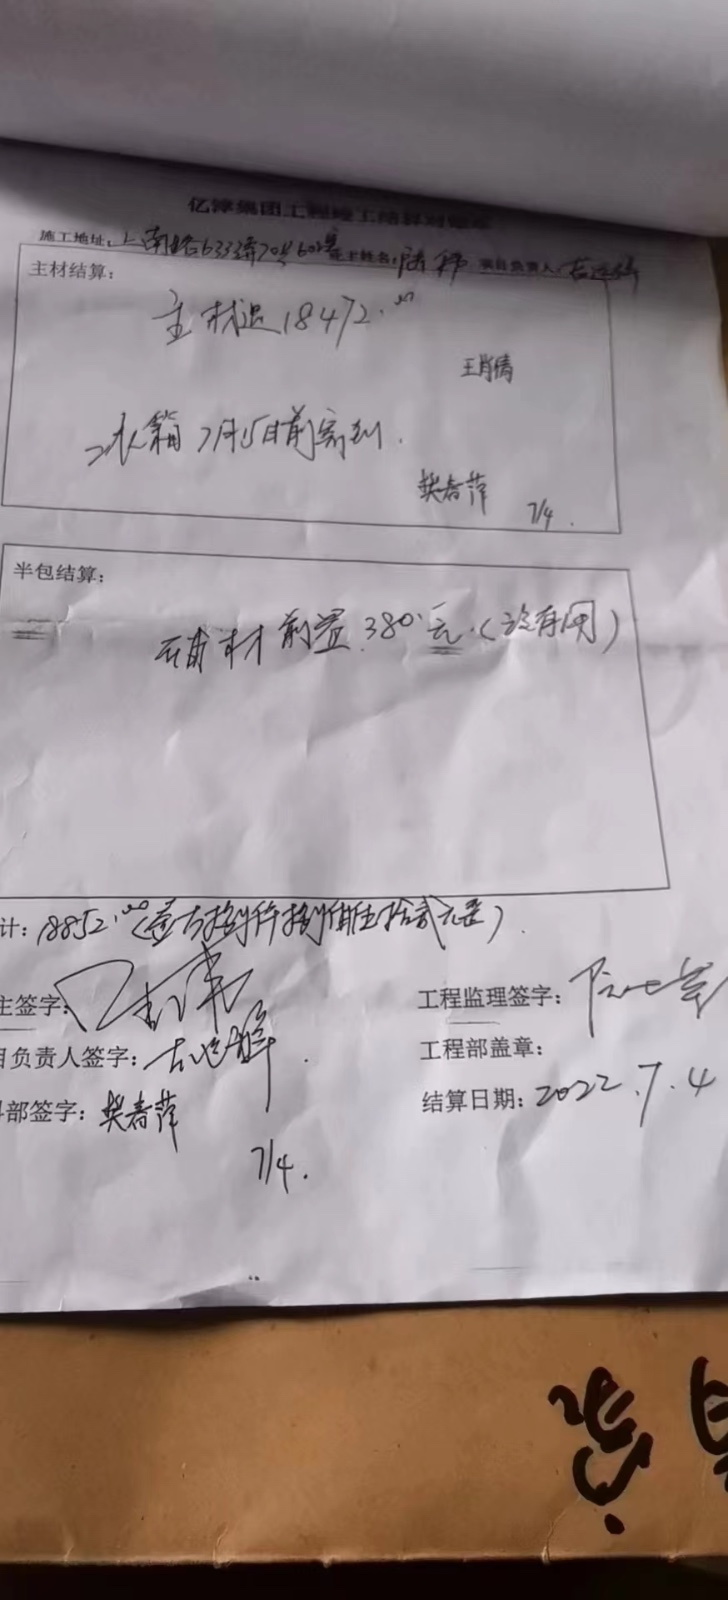 亿律集团工程竣工结算对账单
施工地址：上南路6333弄70号602室 业主姓名： 项目负责人：
主材结算：
主材退18472.00
王肖倩
冰箱7月15日前寄到.
樊春萍
7/4.
半包结算：
辅材前置380元.(没有用)
计：18852.00(壹万捌仟捌佰伍拾贰元整).
主签字：
工程监理签字：
目负责人签字：
工程部盖章：
料部签字：樊春萍
结算日期：2022.7.4
7/4.